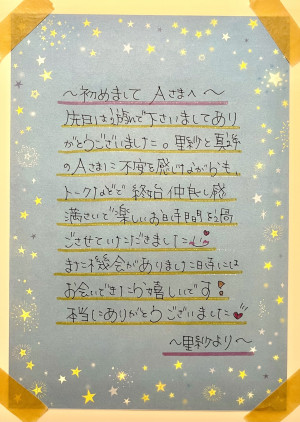 ～初めまして Aさまへ～
先日は遊んで下さいましてあり
がとうございました。里紗と真逆
のAさまに不安を感じながらも、
トークなどで終始仲良し感
満さいで楽しいお時間を過
ごさせていただきました
また機会がありました日時には
お会いできたら嬉しいです!
本当にありがとうございました
～里紗より～